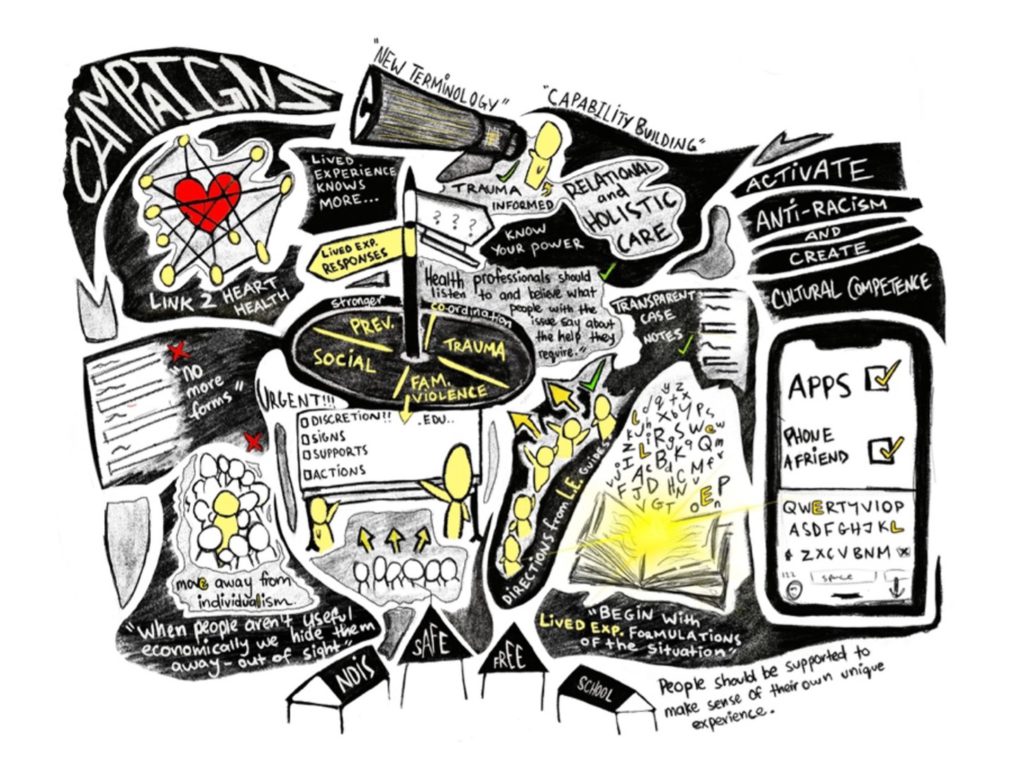 CAMPAIGNS
"NEW TERMINOLOGY"
"CAPABILITY BUILDING"
LIVED
EXPERIENCE
KNOWS
MORE...
LINK 2 HEART
HEALTH
TRAUMA
INFORMED
RELATIONAL
and
HOLISTIC
CARE
ACTIVATE
ANTI-RACISM
AND
CREATE
CULTURAL COMPETENCE
? ? ?
KNOW
YOUR POWER
LIVED EXP.
RESPONSES
"Health professionals should
listen to and believe what
people with the
issue say about
the help they
require."
TRANSPARENT
CASE
NOTES
stronger
co-ordination
PREV.
TRAUMA
SOCIAL
FAM.
VIOLENCE
"no
more
forms"
URGENT!!!
DISCRETION!! .EDU..
SIGNS
SUPPORTS
ACTIONS
DIRECTIONS from L.E. GUIDES
APPS
PHONE
A FRIEND
QWERTYVIOP
ASDFGHJKL
ZXCVBNM
123
space
move away from
individualism.
"When people aren't useful
economically we hide them
away - out of sight"
"BEGIN WITH
LIVED EXP. FORMULATIONS
OF the situation"
NDIS
SAFE
FREE
SCHOOL
People should be supported to
make sense of their own unique
experience.